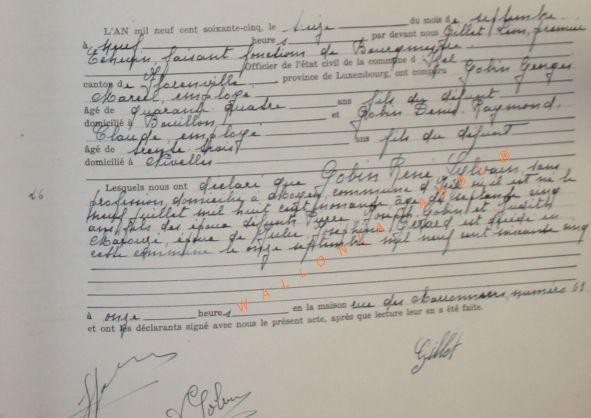 L'AN mil neuf cent soixante-cinq, le seize du mois de septembre
à neuf heures par devant nous Gillet Léon, premier
Echevin, faisant fonctions de Bourgmestre
Officier de l'état civil de la commune d'Izel
canton de Florenville, province de Luxembourg, ont comparu Gobin Georges
Marcel, employé
âgé de quarante quatre ans fils du défunt
domicilié à Bouillon et Gobin Denis Raymond,
Claude, employé
âgé de trente trois ans fils du défunt
domicilié à Nivelles
26
Lesquels nous ont déclaré que Gobin René Sylvain sans
profession, domicilié à commune d'Izel où il est né le
neuf juillet mil huit cent nonante âgé de septante cinq
ans, fils des époux défunts Joseph Gobin et Judith
époux de Julie Joséphine Gérard est décédé en
cette commune le onze septembre mil neuf cent soixante cinq
à onze heures en la maison rue des Marronniers, numéro 69
et ont les déclarants signé avec nous le présent acte, après que lecture leur en a été faite.
Gillet
Gobin
WALLONIE